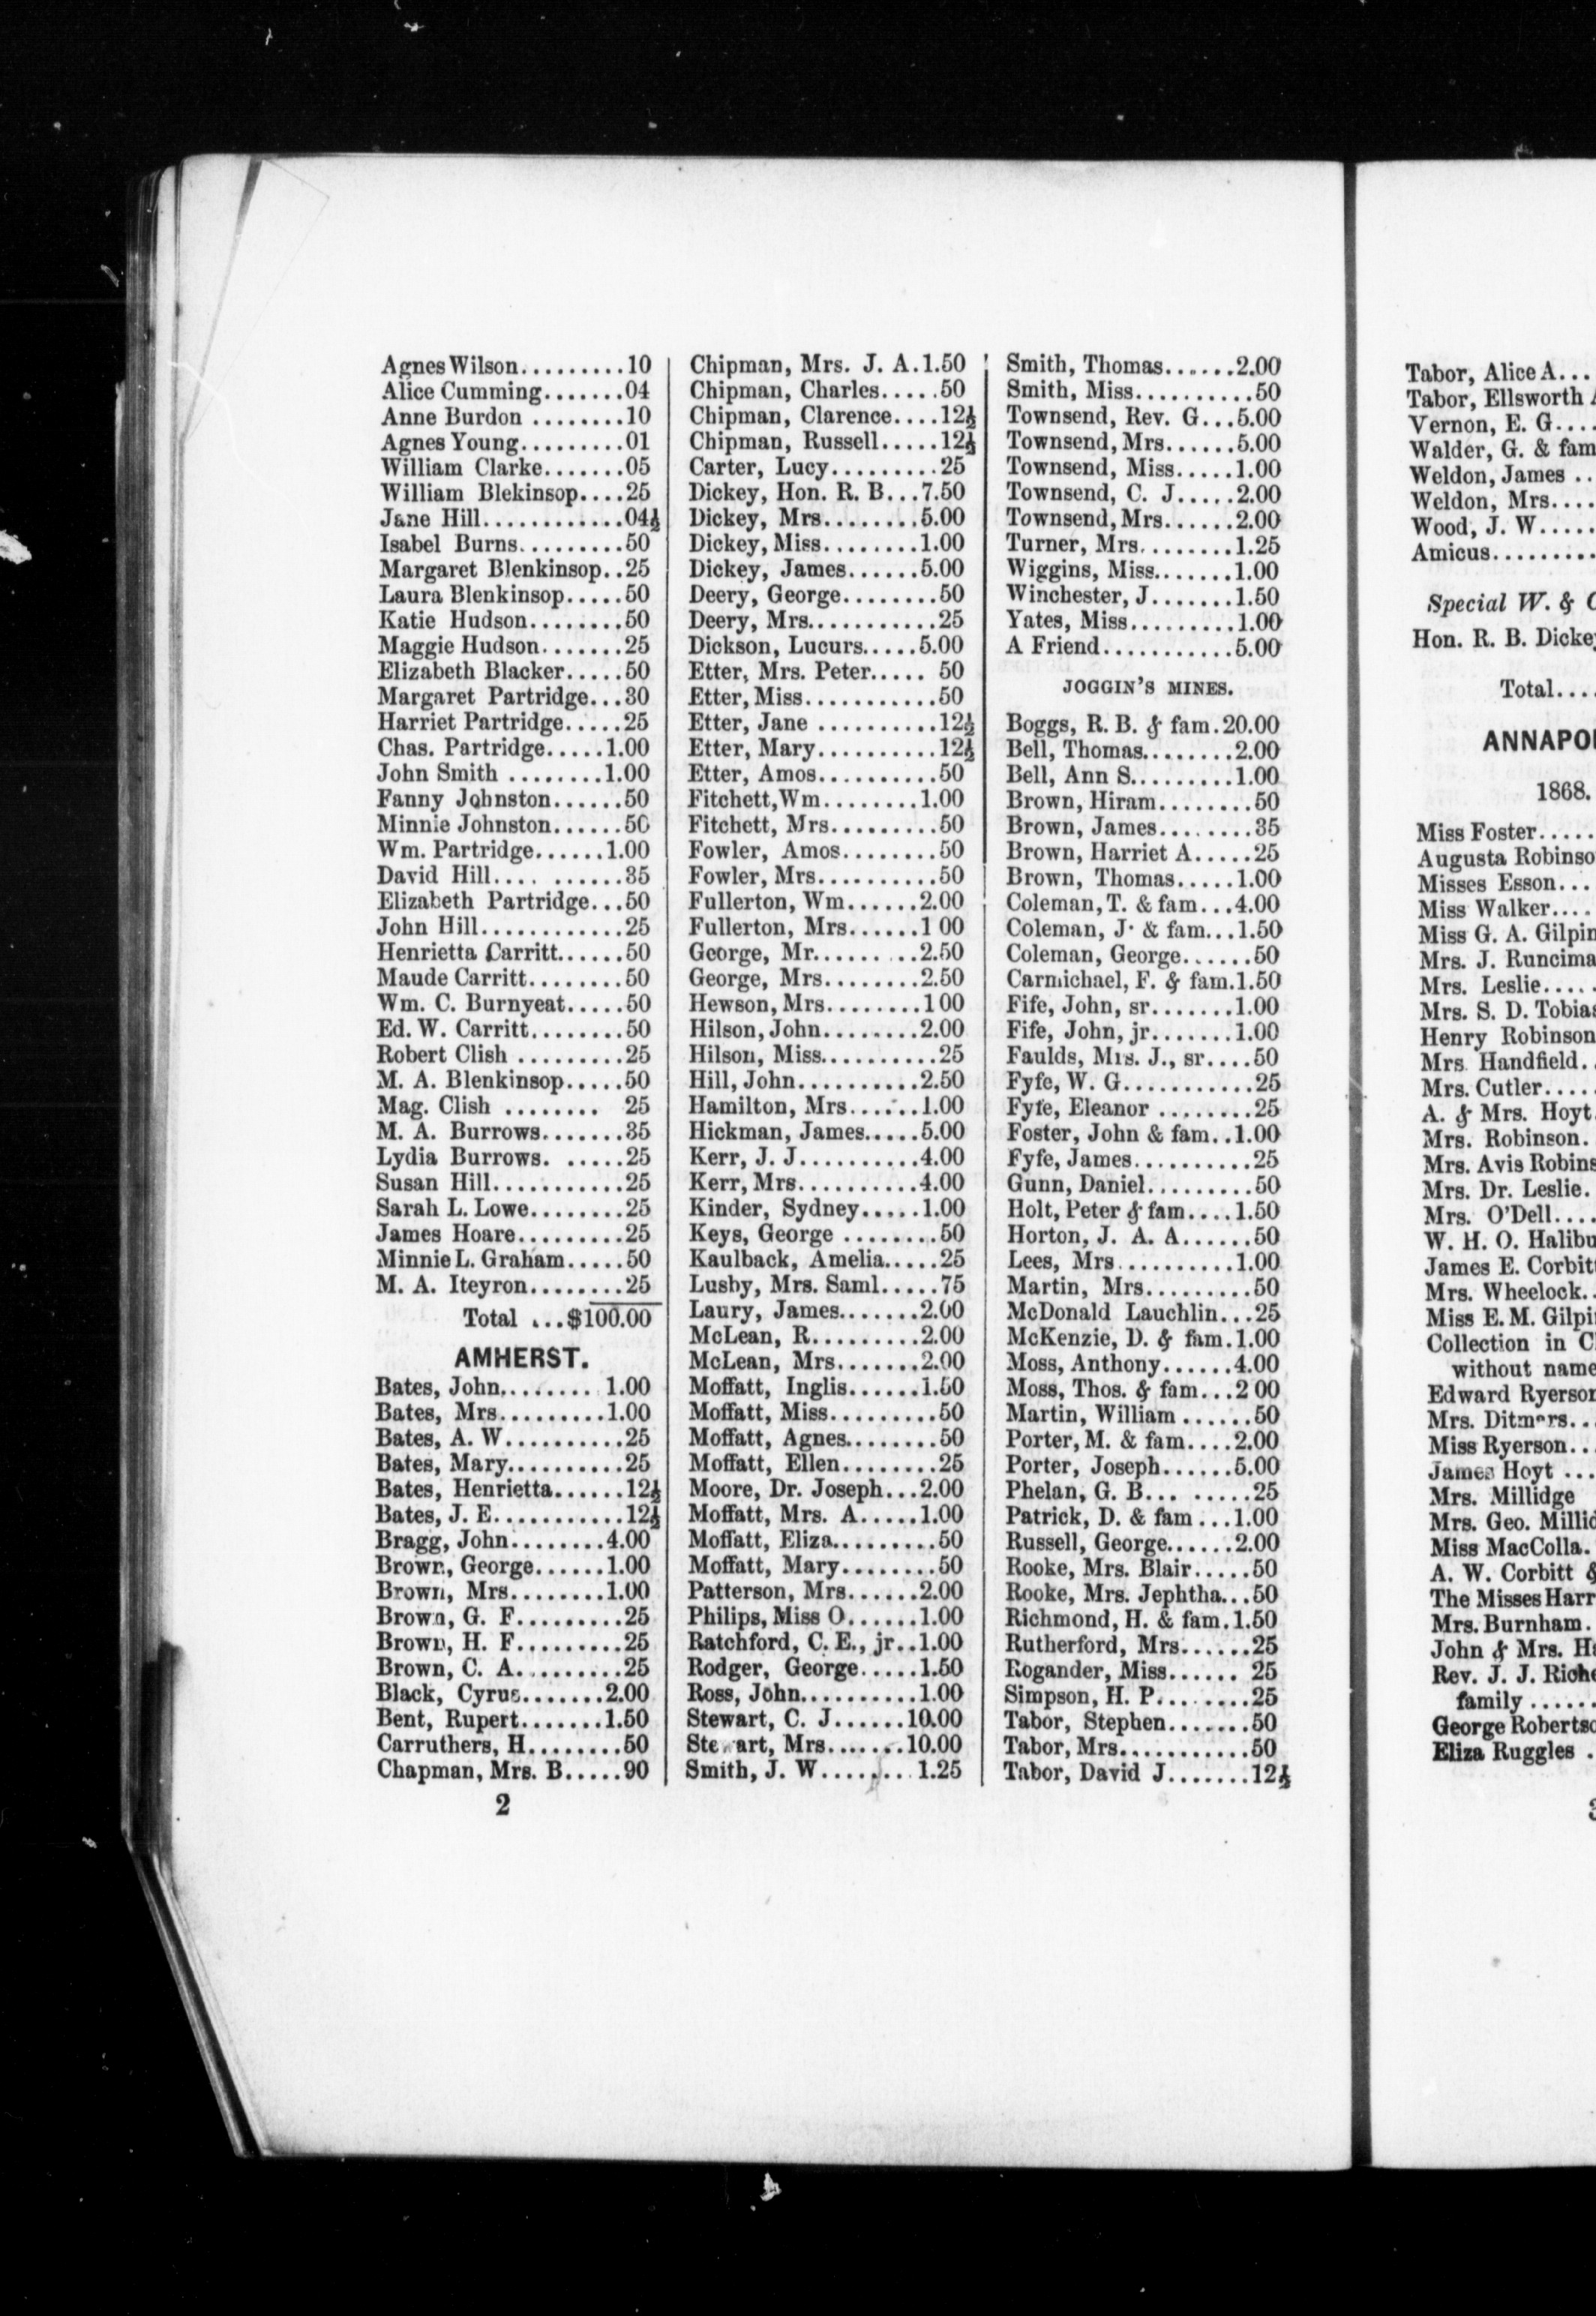 Agnes Wilson.........10
Alice Cumming.......04
Anne Burdon ........10
Agnes Young.........01
William Clarke.......05
William Blekinsop....25
Jane Hill............04½
Isabel Burns.........50
Margaret Blenkinsop..25
Laura Blenkinsop.....50
Katie Hudson........50
Maggie Hudson.......25
Elizabeth Blacker.....50
Margaret Partridge...30
Harriet Partridge.....25
Chas. Partridge.....1.00
John Smith ........1.00
Fanny Johnston......50
Minnie Johnston......50
Wm. Partridge......1.00
David Hill.... ......35
Elizabeth Partridge...50
John Hill............25
Henrietta Carritt......50
Maude Carritt........50
Wm. C. Burnyeat.....50
Ed. W. Carritt........50
Robert Clish .........25
M. A. Blenkinsop.....50
Mag. Clish ........ 25
M. A. Burrows.......35
Lydia Burrows. .....25
Susan Hill...........25
Sarah L. Lowe........25
James Hoare.........25
Minnie L. Graham.....50
M. A. Iteyron........25
Total ...$100.00
AMHERST.
Bates, John........ 1.00
Bates, Mrs.........1.00
Bates, A. W..........25
Bates, Mary..........25
Bates, Henrietta......12½
Bates, J. E...........12½
Bragg, John........4.00
Brown, George......1.00
Brown, Mrs........1.00
Brown, G. F.........25
Brown, H. F.........25
Brown, C. A.........25
Black, Cyrus.......2.00
Bent, Rupert.......1.50
Carruthers, H........50
Chapman, Mrs. B.....90
2
Chipman, Mrs. J. A.1.50
Chipman, Charles.....50
Chipman, Clarence....12½
Chipman, Russell.....12½
Carter, Lucy.........25
Dickey, Hon. R. B...7.50
Dickey, Mrs........5.00
Dickey, Miss........1.00
Dickey, James......5.00
Deery, George........50
Deery, Mrs...........25
Dickson, Lucurs.....5.00
Etter, Mrs. Peter..... 50
Etter, Miss...........50
Etter, Jane ..........12½
Etter, Mary..........12½
Etter, Amos..........50
Fitchett,Wm........1.00
Fitchett, Mrs.........50
Fowler, Amos........50
Fowler, Mrs..........50
Fullerton, Wm......2.00
Fullerton, Mrs......1 00
George, Mr.........2.50
George, Mrs........2.50
Hewson, Mrs........1 00
Hilson, John........2.00
Hilson, Miss..........25
Hill, John..........2.50
Hamilton, Mrs......1.00
Hickman, James.....5.00
Kerr, J. J..........4.00
Kerr, Mrs..........4.00
Kinder, Sydney.....1.00
Keys, George ........50
Kaulback, Amelia.....25
Lusby, Mrs. Saml.....75
Laury, James.......2.00
McLean, R.........2.00
McLean, Mrs.......2.00
Moffatt, Inglis......1.50
Moffatt, Miss.........50
Moffatt, Agnes........50
Moffatt, Ellen........25
Moore, Dr. Joseph...2.00
Moffatt, Mrs. A.....1.00
Moffatt, Eliza.........50
Moffatt, Mary........50
Patterson, Mrs......2.00
Philips, Miss O......1.00
Ratchford, C. E., jr..1.00
Rodger, George.....1.50
Ross, John..........1.00
Stewart, C. J......10.00
Stewart, Mrs.......10.00
Smith, J. W........ 1.25
Smith, Thomas......2.00
Smith, Miss..........50
Townsend, Rev. G...5.00
Townsend, Mrs......5.00
Townsend, Miss.....1.00
Townsend, C. J.....2.00
Townsend, Mrs......2.00
Turner, Mrs........1.25
Wiggins, Miss.......1.00
Winchester, J.......1.50
Yates, Miss.........1.00
A Friend...........5.00
JOGGIN'S MINES.
Boggs, R. B. & fam.20.00
Bell, Thomas........2.00
Bell, Ann S.........1.00
Brown, Hiram........50
Brown, James........35
Brown, Harriet A.....25
Brown, Thomas.....1.00
Coleman, T. & fam...4.00
Coleman, J· & fam...1.50
Coleman, George......50
Carmichael, F. & fam.1.50
Fife, John, sr.......1.00
Fife, John, jr.......1.00
Faulds, Mrs. J., sr....50
Fyfe, W. G...........25
Fyfe, Eleanor ........25
Foster, John & fam..1.00
Fyfe, James..........25
Gunn, Daniel.........50
Holt, Peter & fam....1.50
Horton, J. A. A......50
Lees, Mrs..........1.00
Martin, Mrs.........50
McDonald Lauchlin...25
McKenzie, D. & fam.1.00
Moss, Anthony......4.00
Moss, Thos. & fam...2 00
Martin, William ......50
Porter, M. & fam....2.00
Porter, Joseph......5.00
Phelan, G. B... .....25
Patrick, D. & fam ...1.00
Russell, George......2.00
Rooke, Mrs. Blair.....50
Rooke, Mrs. Jephtha...50
Richmond, H. & fam.1.50
Rutherford, Mrs......25
Rogander, Miss...... 25
Simpson, H. P........25
Tabor, Stephen.......50
Tabor, Mrs...........50
Tabor, David J.......12½
Tabor, Alice A...
Tabor, Ellsworth
Vernon, E. G....
Walder, G. & fam
Weldon, James ..
Weldon, Mrs....
Wood, J. W.....
Amicus.........
Special W. &
Hon. R. B. Dickey
Total....
ANNAPO
1868.
Miss Foster.....
Augusta Robinso
Misses Esson...
Miss Walker....
Miss G. A. Gilpin
Mrs. J. Runcima
Mrs. Leslie.....
Mrs. S. D. Tobias
Henry Robinson
Mrs. Handfield.
Mrs. Cutler....
A. & Mrs. Hoyt
Mrs. Robinson.
Mrs. Avis Robins
Mrs. Dr. Leslie.
Mrs. O'Dell....
W. H. O. Halibu
James E. Corbitt
Mrs. Wheelock..
Miss E. M. Gilpi
Collection in C
without name
Edward Ryerson
Mrs. Ditmars..
Miss Ryerson...
James Hoyt ...
Mrs. Millidge
Mrs. Geo. Millid
Miss MacColla.
A. W. Corbitt &
The Misses Harr
Mrs. Burnham.
John & Mrs. Ha
Rev. J. J. Riche
family ......
George Robertso
Eliza Ruggles .